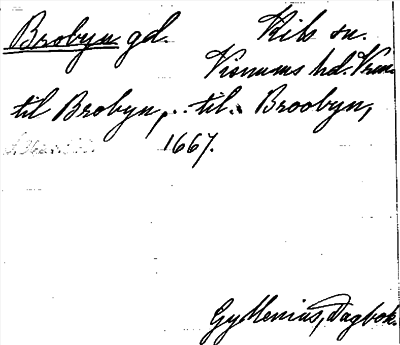 Brobyn gd. Kils sn.
Visnums hd. Vrml.
til Brobyn, .. til. Broobyn,
1667.
Gyllenius, Dagbok.